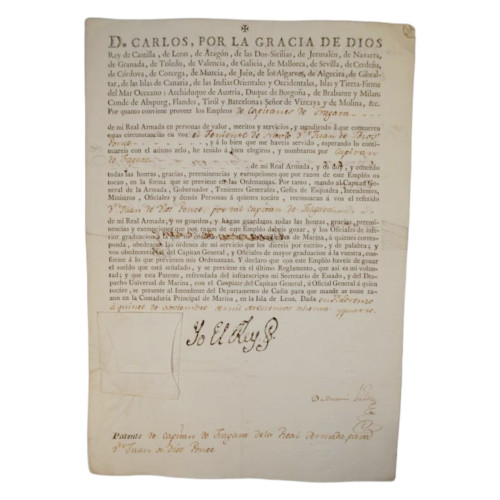 ✠
Dn. CARLOS, POR LA GRACIA DE DIOS
Rey de Castilla, de Leon, de Aragón, de las Dos-Sicilias, de Jerusalén, de Navarra,
de Granada, de Toledo, de Valencia, de Galicia, de Mallorca, de Sevilla, de Cerdeña,
de Córdova, de Corcega, de Murcia, de Jaén, de los Algarves, de Algecira, de Gibral-
tar, de las Islas de Canaria, de las Indias Orientales y Occidentales, Islas y Tierra-Firme
del Mar Oceano; Archiduque de Austria, Duque de Borgoña, de Brabante y Milán;
Conde de Abspurg, Flandes, Tiról y Barcelona; Señor de Vizcaya y de Molina, &c.
Por quanto conviene proveer los Empleos de Capitanes de Fragata
de mi Real Armada en personas de valor, meritos y servicios, y atendiendo à que concurren
estas circunstancias en vos el Teniente de Navio Dn. Juan de Dios
Ponce y á lo bien que me haveis servido, esperando lo conti-
nuareis con el mismo zelo, he tenido á bien elegiros, y nombraros por Capitan
de Fragata
de mi Real Armada, y os doy, y concedo
todas las honras, gracias, preeminencias y exempciones que por razon de este Empléo os
tocan, en la forma que se previene en las Ordenanzas. Por tanto, mando al Capitan General
de la Armada, Gobernador, Tenientes Generales, Gefes de Esquadra, Intendentes,
Ministros, Oficiales y demás Personas á quienes tocáre, reconozcan á vos el referido
Dn. Juan de Dios Ponce, por mi Capitan de Fragata
de mi Real Armada, y os guarden, y hagan guardaros todas las honras, gracias, preeminen-
cias y exempciones que por razon de este Empléo debais gozar, y los Oficiales de infe-
rior graduacion de Marina, á quienes correspon-
da, obedezcan las órdenes de mi servicio que les diereis por escrito, y de palabra; y
vos obedecereis las del Capitan General, y Oficiales de mayor graduacion á la vuestra, con-
forme á lo que previenen mis Ordenanzas. Y declaro que con este Empléo haveis de gozar
el sueldo que está señalado, y se previene en el último Reglamento, que asi es mi volun-
tad; y que esta Patente, refrendada del infrascripto mi Secretario de Estado, y del Des-
pacho Universal de Marina, con el Cumplase del Capitan General, ó Oficial General á quien
tocáre, se presente al Intendente del Departamento de Cadiz para que mande se tome razon
en la Contaduría Principal de Marina, en la Isla de Leon. Dada en San Lorenzo
á quince de Noviembre de mil setecientos noventa y quatro.
Yo El Rey
Patente de Capitan de Fragata de la Real Armada para
Dn. Juan de Dios Ponce